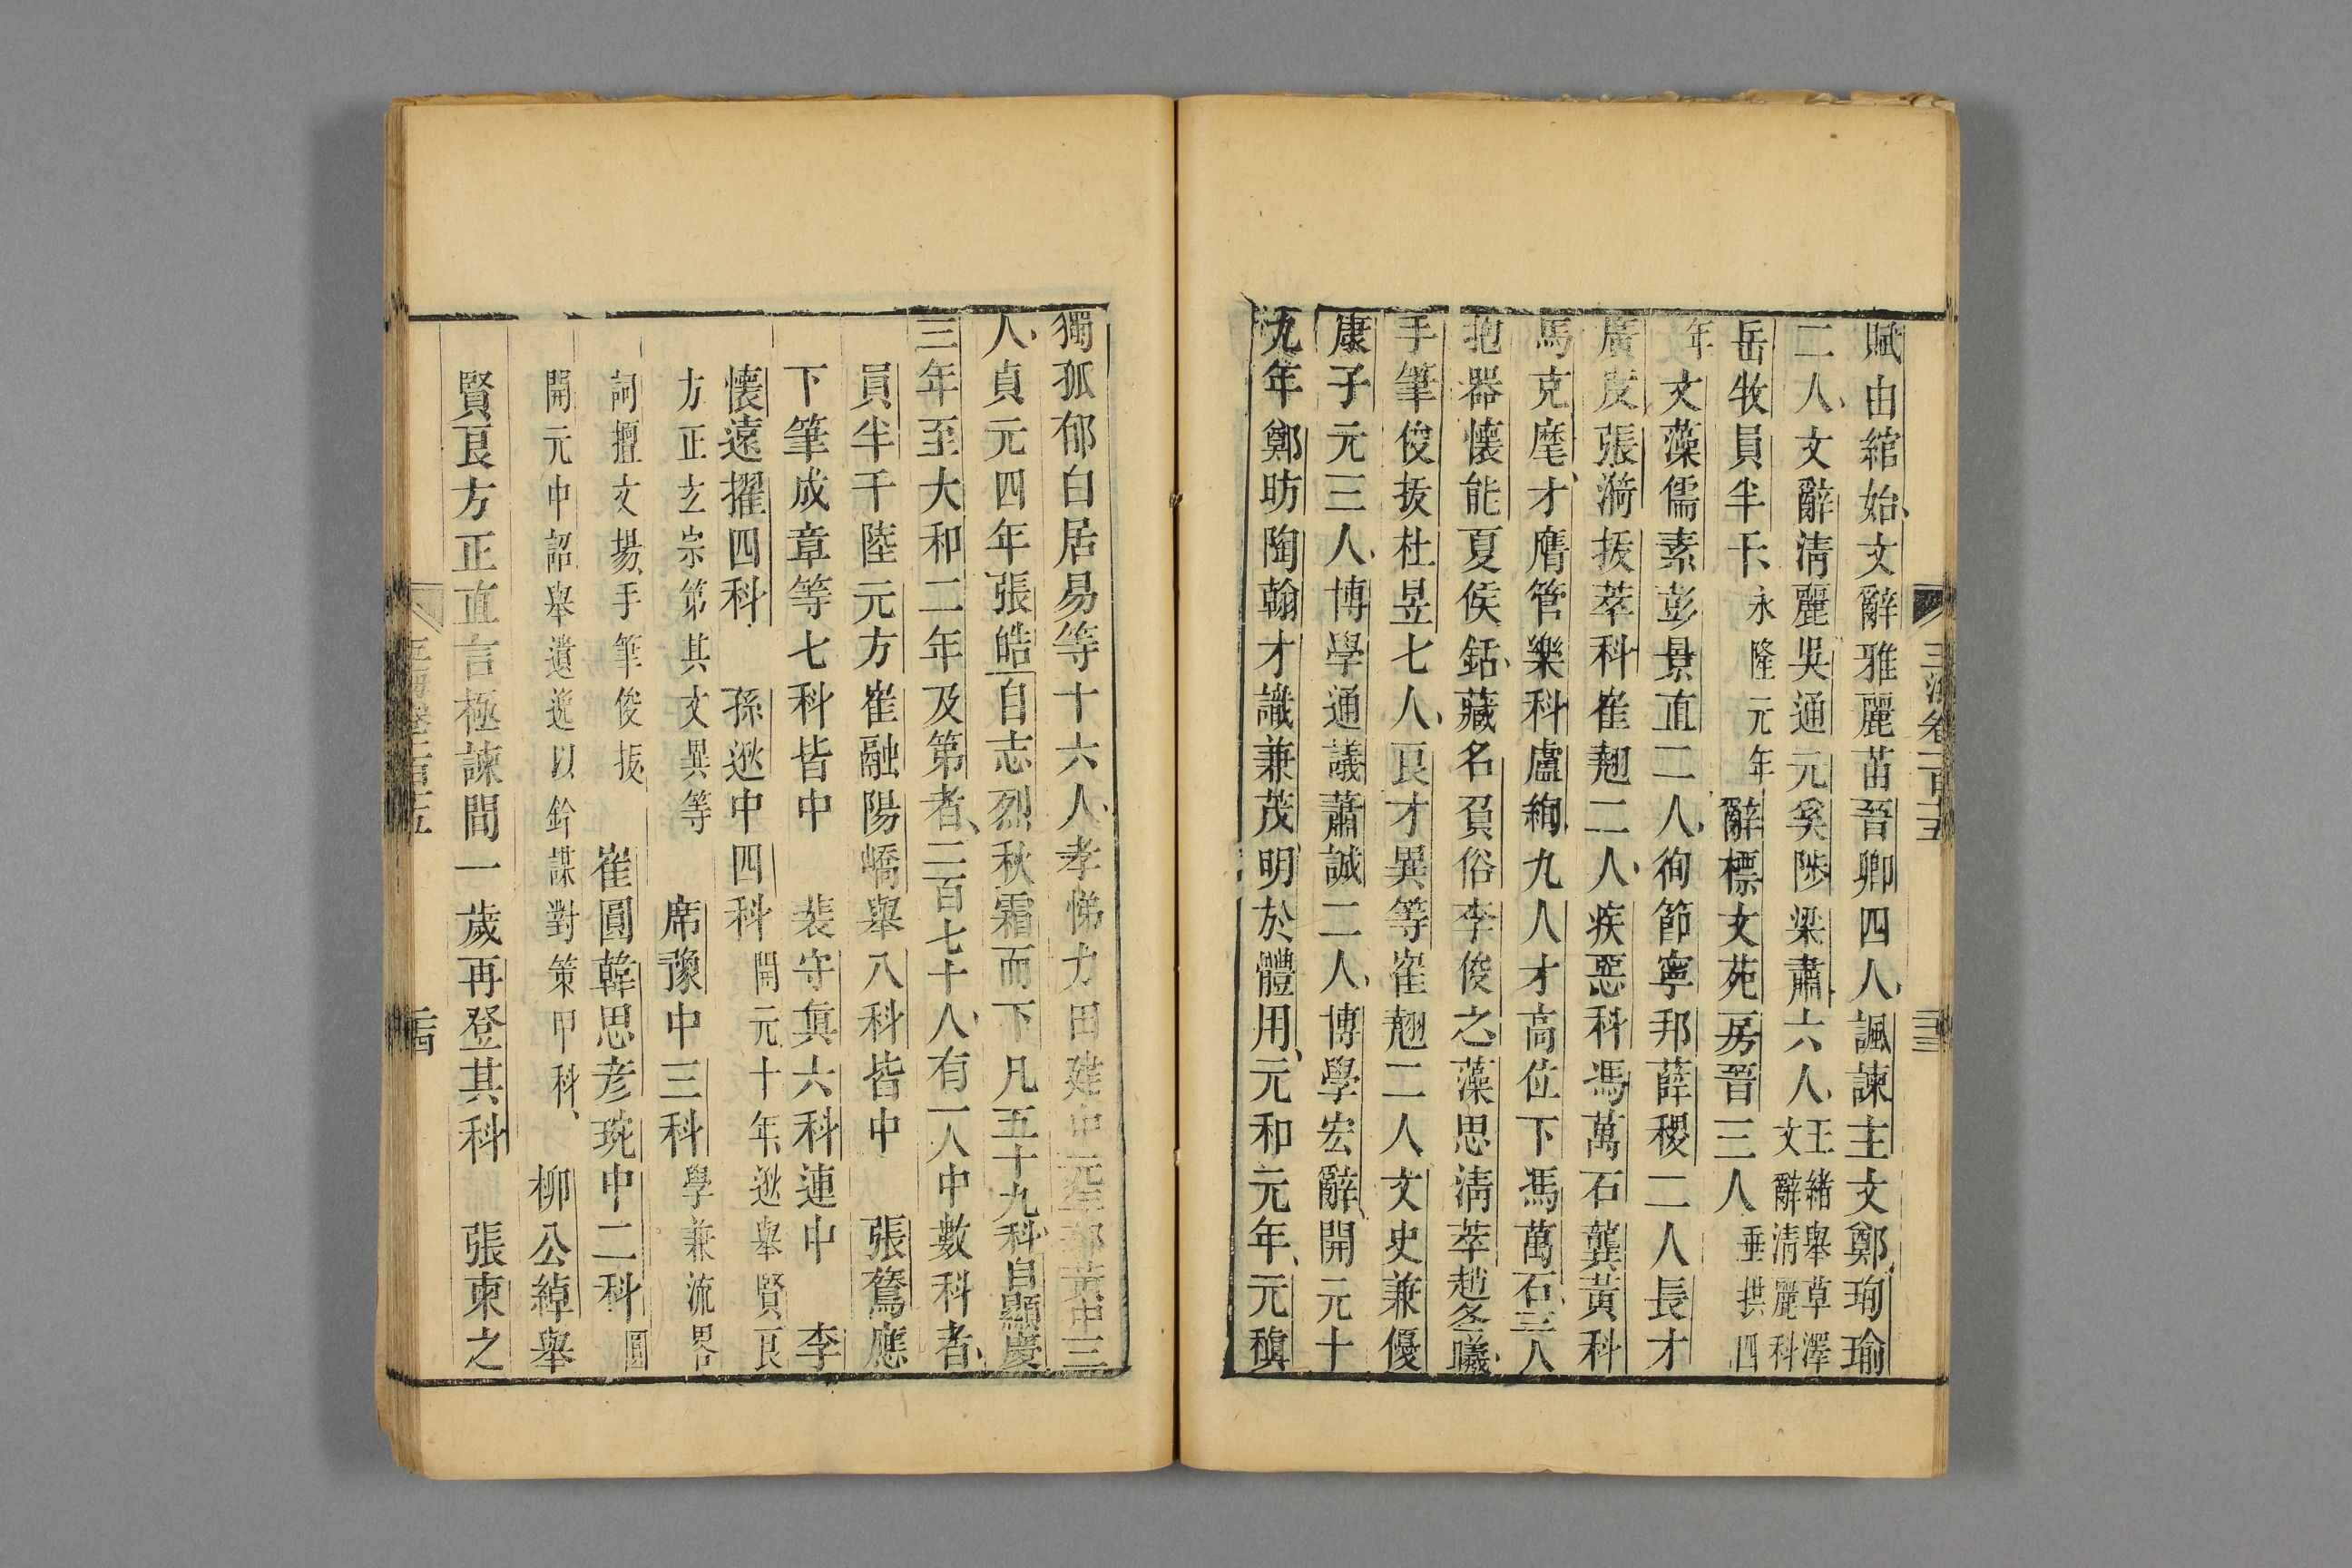 賦由綰始文辭雅麗苗吾卿四人諷諫主文鄭珣瑜
二人文辭淸麗吳通元奚陟梁肅六人王緒舉草澤文辭淸麗科
岳牧員半千永隆元年辭標文苑房晉三人垂拱四
年文藻儒素彭景直二人徇節寧邦薛稷二人長才
廣度張漪拔萃科崔翹二人疾惡科馮萬石龔黃科
馬克麾才膺管樂科盧絢九人才高位下馮萬石三人
抱器懷能夏侯銛藏名負俗李俊之藻思淸萃趙冬曦
手筆俊拔杜昱七人良才異等崔翹二人文史兼優
康子元三人博學通議蕭誠二人博學宏辭開元十
九年鄭昉陶翰才識兼茂明於體用元和元年元稹
獨孤郁白居易等十六人孝悌力田建中元年郭黃中三
人貞元四年張皓自志烈秋霜而下凡五十九科自顯慶
三年至大和二年及第者二百七十人有一人中數科者
員半千陸元方崔融陽嶠舉八科皆中 張鷟應
下筆成章等七科皆中 裴守真六科連中 李
懷遠擢四科 孫逖中四科開元十年逖舉賢良
方正玄宗第其文異等 席豫中三科學兼流畧
詞擅文場手筆俊拔 崔圓韓思彥琬中二科圓
開元中詔舉遺逸以鈐謀對策甲科 柳公綽舉
賢良方正直言極諫間一歲再登其科 張柬之